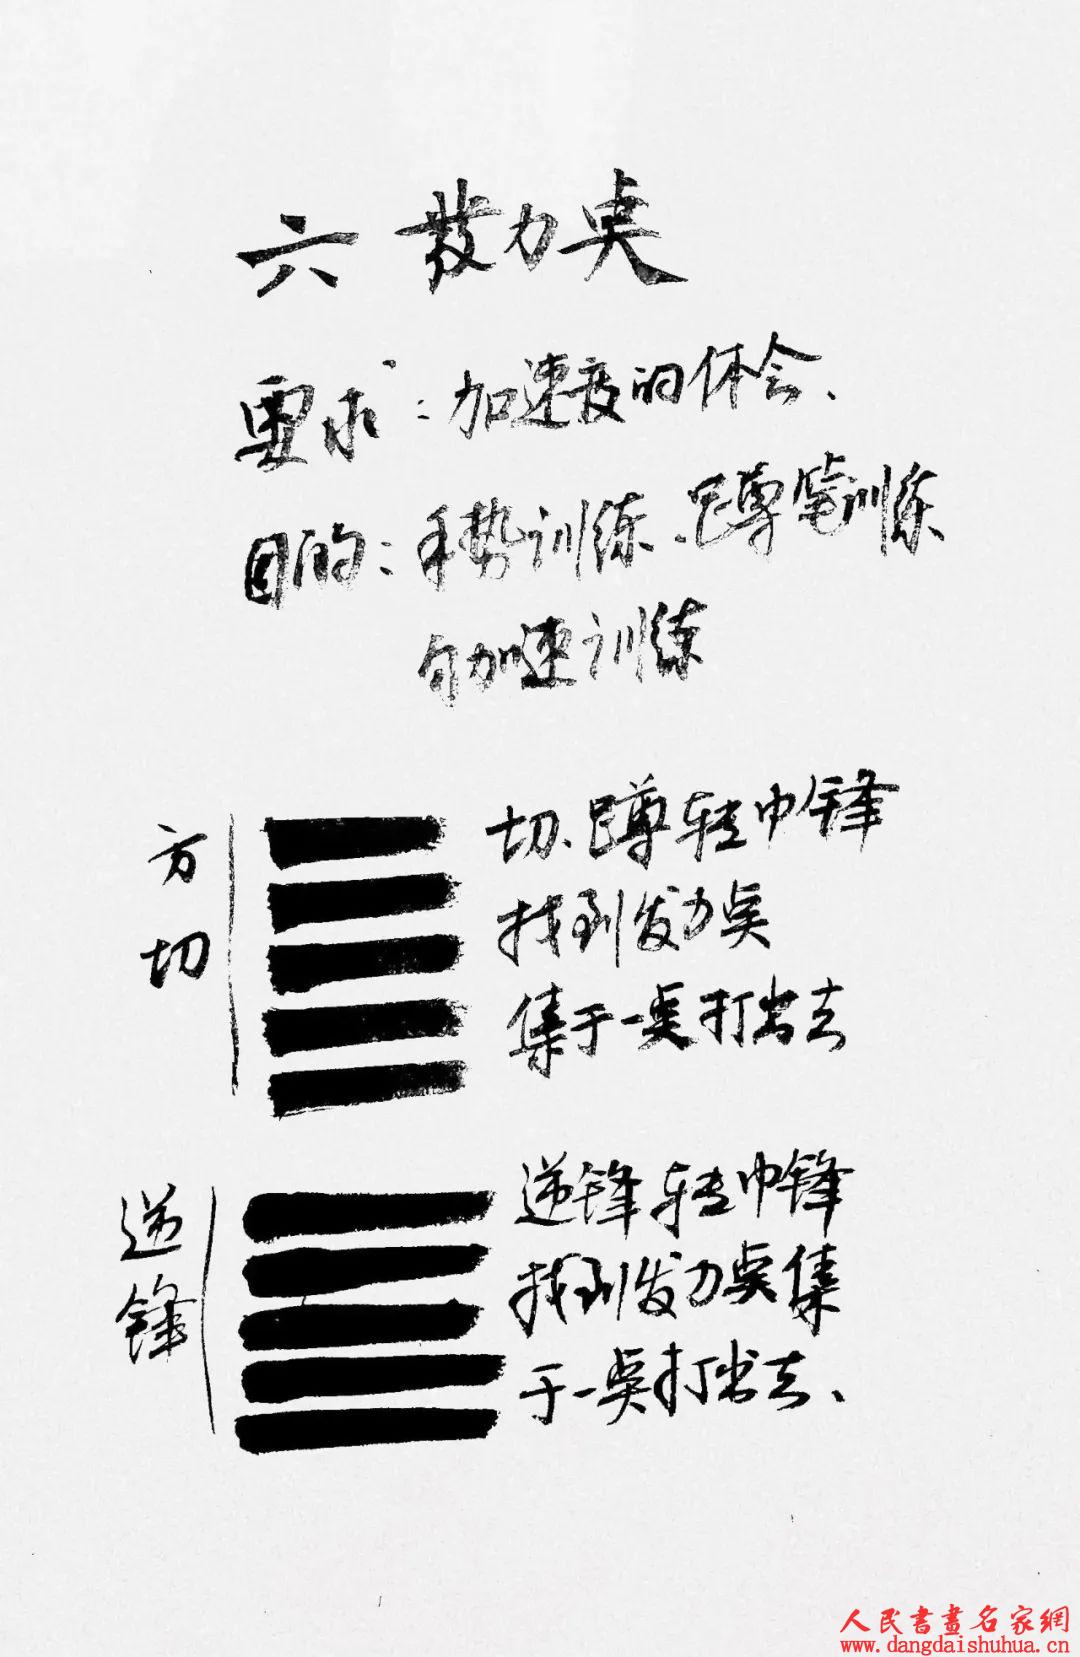 六 發力点
要求：加速度的体会、
目的：手势训练、蹲笔训练
匀加速训练
方切
切、蹲转中锋
找到发力点
集于一点打出去
逆锋
逆锋转中锋
找到发力点集
于一点打出去、
人民書畫名家網
www.dangdaishuhua.cn